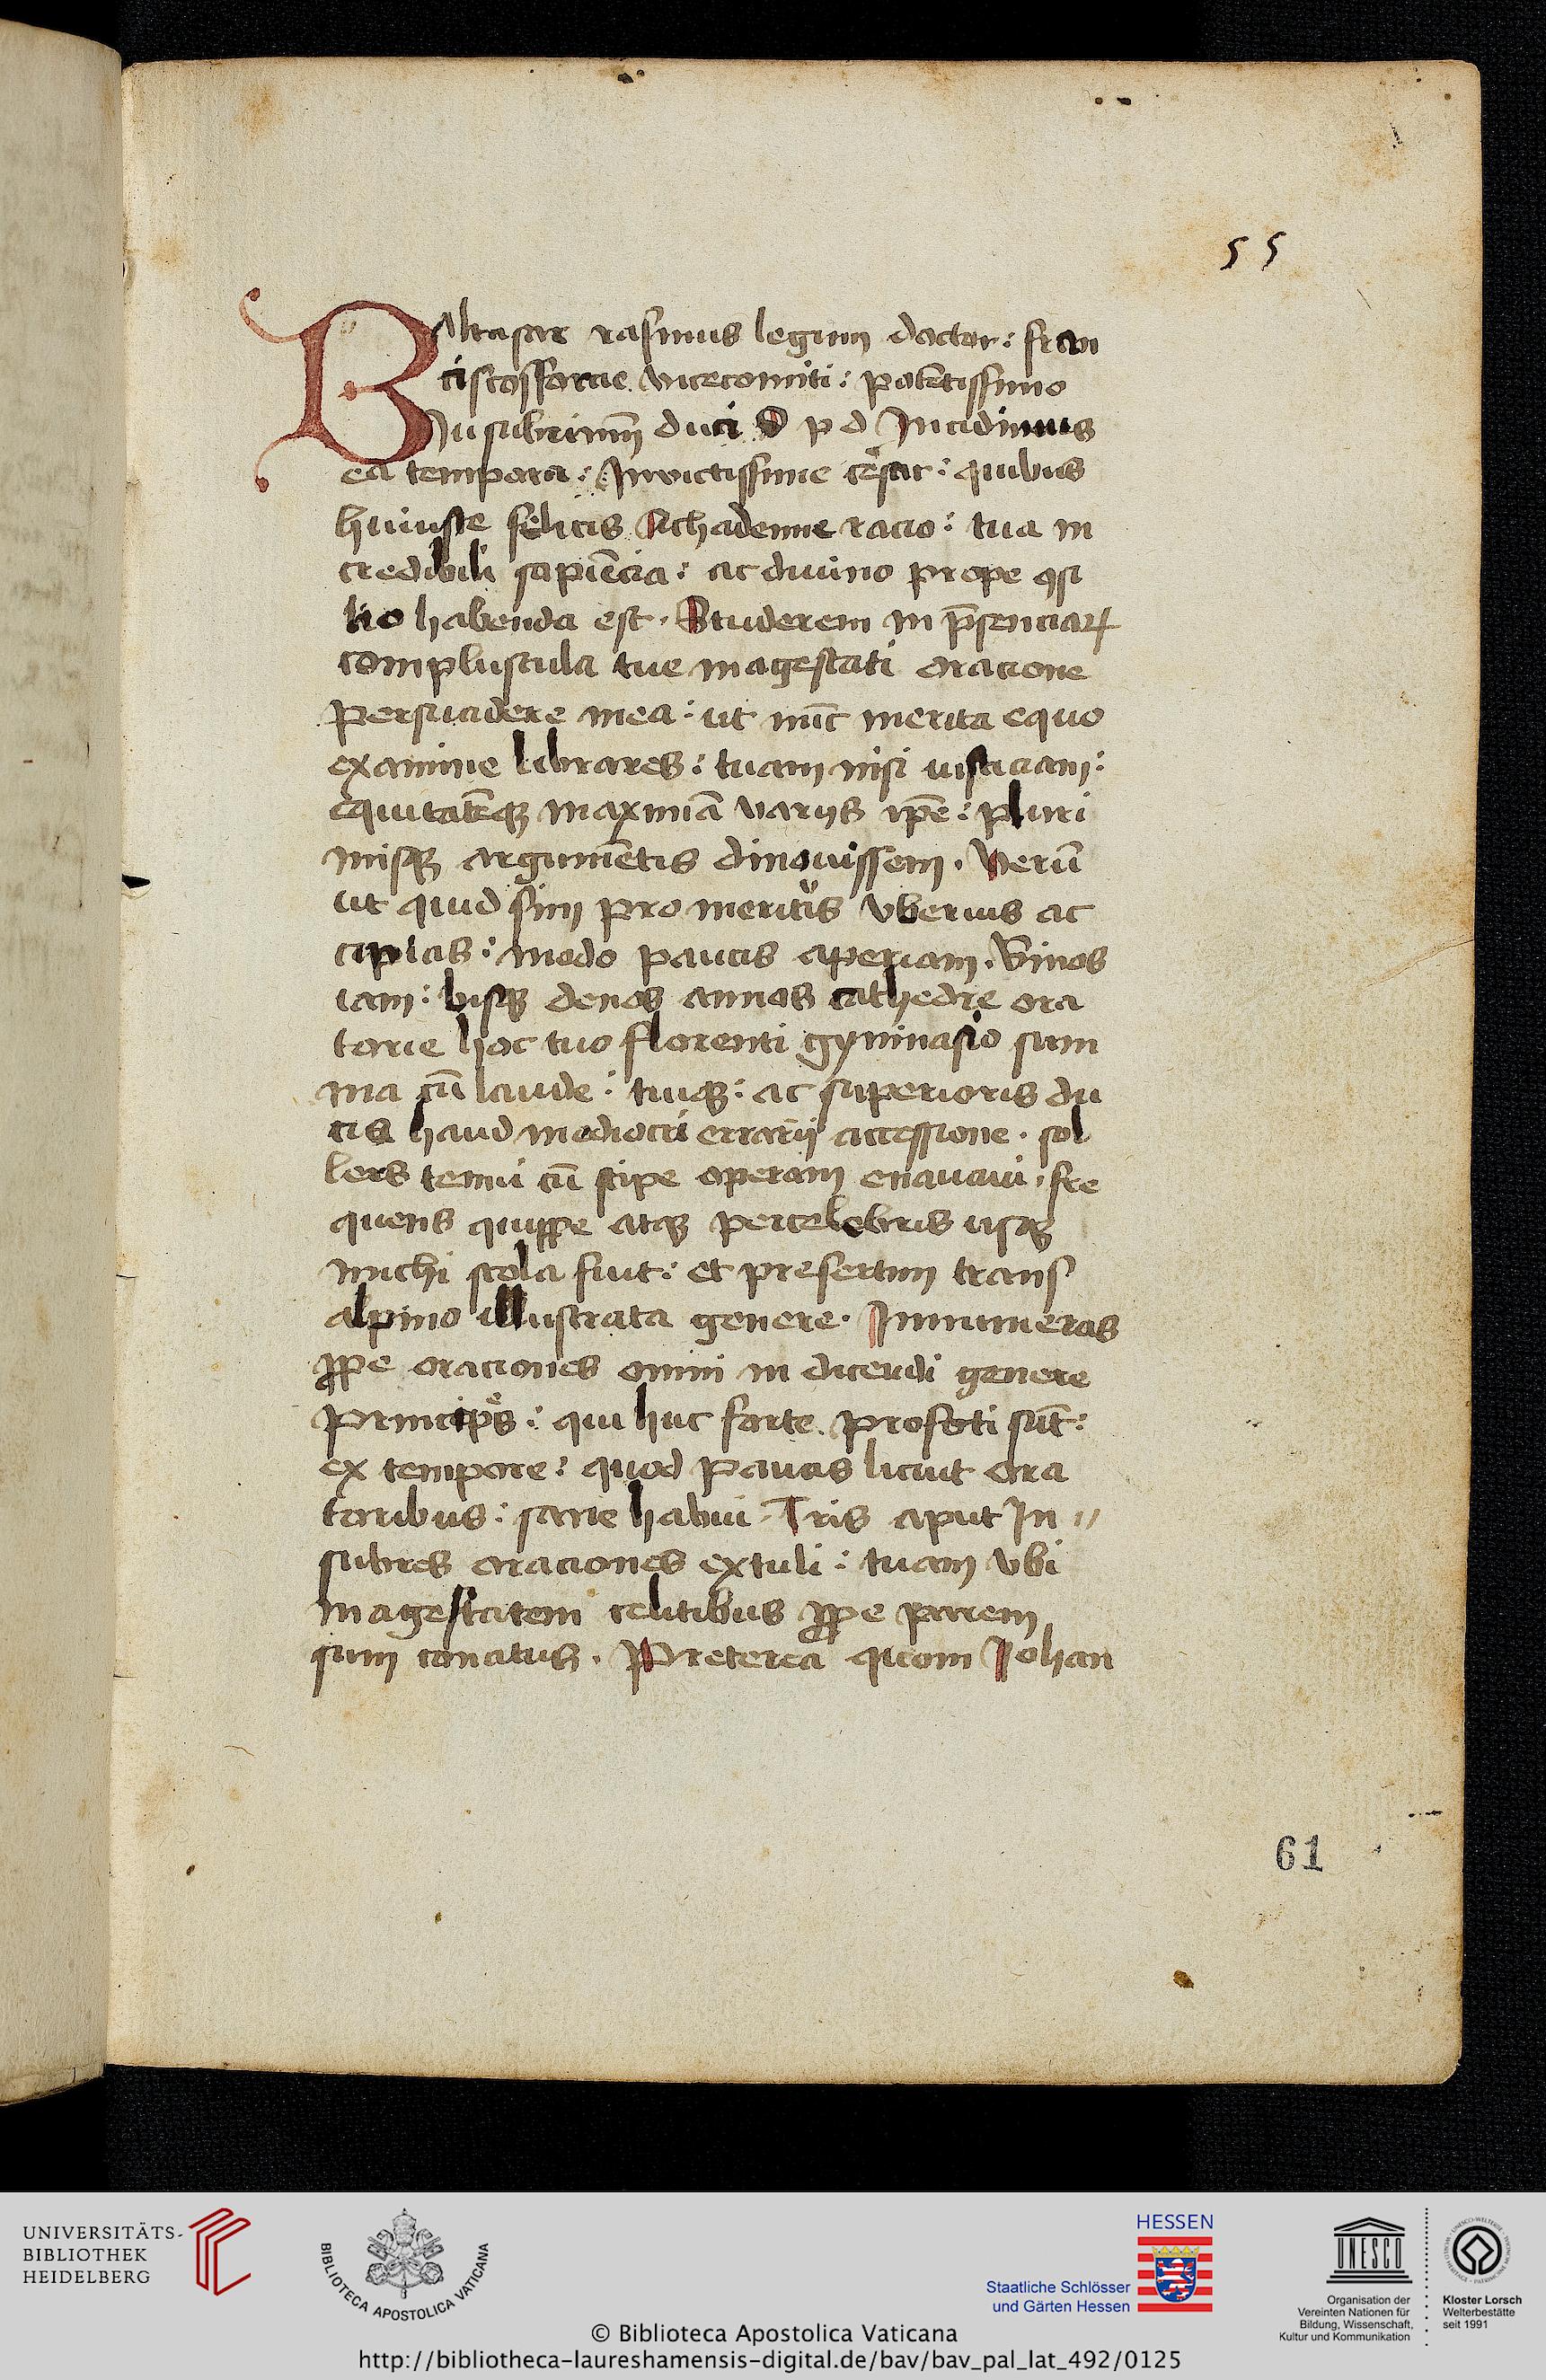 55
Baltasar rasinus legum doctor: fran
ciscosfortie vicecomiti: potētissimo
Insubrium duci S p d Incidimus
ea tempora: Invictissime cesar: quibus
huiusce felicis Achademie racio: tua in
credibili sapiēcia: ac diuino prope ꝯsi
lio habenda est. Studerem in p̄senciaꝝ
compluscula tue magestati oracione
persuadere mea: ut nūc merita equo
examine librares: tuam nisi iusticiam:
equitatēqꝫ maximā variis ip̄e: pluri
misqꝫ argumētis dinouissem. Verū
ut quid sim pro meritus vberius ac
cipias: modo paucis aperiam. Vinos
iam: bisqꝫ denos annos cathedre ora
torie hoc tuo florenti gyminasio sum
ma cū laude: tuiqꝫ: ac superioris du
cis haud mediocri errarii accessione. sol
lers tenui cū stipe operam enauaui. fre
quens quippe atqꝫ percelebris usqꝫ
michi scola fuit: et presertim trans
alpino illustrata genere. Innumeras
ꝓpe oraciones omni in dicendi genere
principes: qui huc forte profecti sūt:
ex tempore: quod paucis licuit ora
toribus: sane habui. Tris aput In //
subres oraciones extuli: tuam vbi
magestatem celitibus ꝓpe parem
sum conatus. Preterea quom Johan
61
UNIVERSITÄTS-
BIBLIOTHEK
HEIDELBERG
BIBLIOTECA APOSTOLICA VATICANA
HESSEN
Staatliche Schlösser
und Gärten Hessen
UNESCO
Organisation der
Vereinten Nationen für
Bildung, Wissenschaft,
Kultur und Kommunikation
Kloster Lorsch
Welterbestätte
seit 1991
© Biblioteca Apostolica Vaticana
http://bibliotheca-laureshamensis-digital.de/bav/bav_pal_lat_492/0125